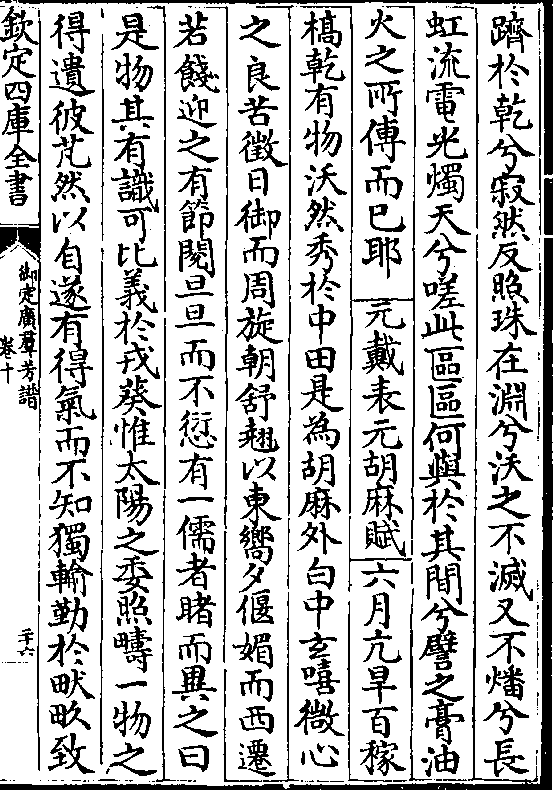 躋於乾兮寂然反照珠在淵兮沃之不滅又不燔兮長
虹流電光燭天兮嗟此區區何與於其間兮譬之膏油
火之所傳而已耶 元戴表元胡麻賦 六月亢旱百稼
槁乾有物沃然秀於中田是為胡麻外白中玄嘻微心
之良苦徵日御而周旋朝舒翹以東嚮夕偃媚而西遷
若餞迎之有節閱旦旦而不愆有一儒者睹而異之曰
是物其有識可比義於戎葵惟太陽之委照疇一物之
得遺彼芃然以自遂有得氣而不知獨輸勤於畎畝致
欽定四庫全書
御定廣羣芳譜
卷十
二十六